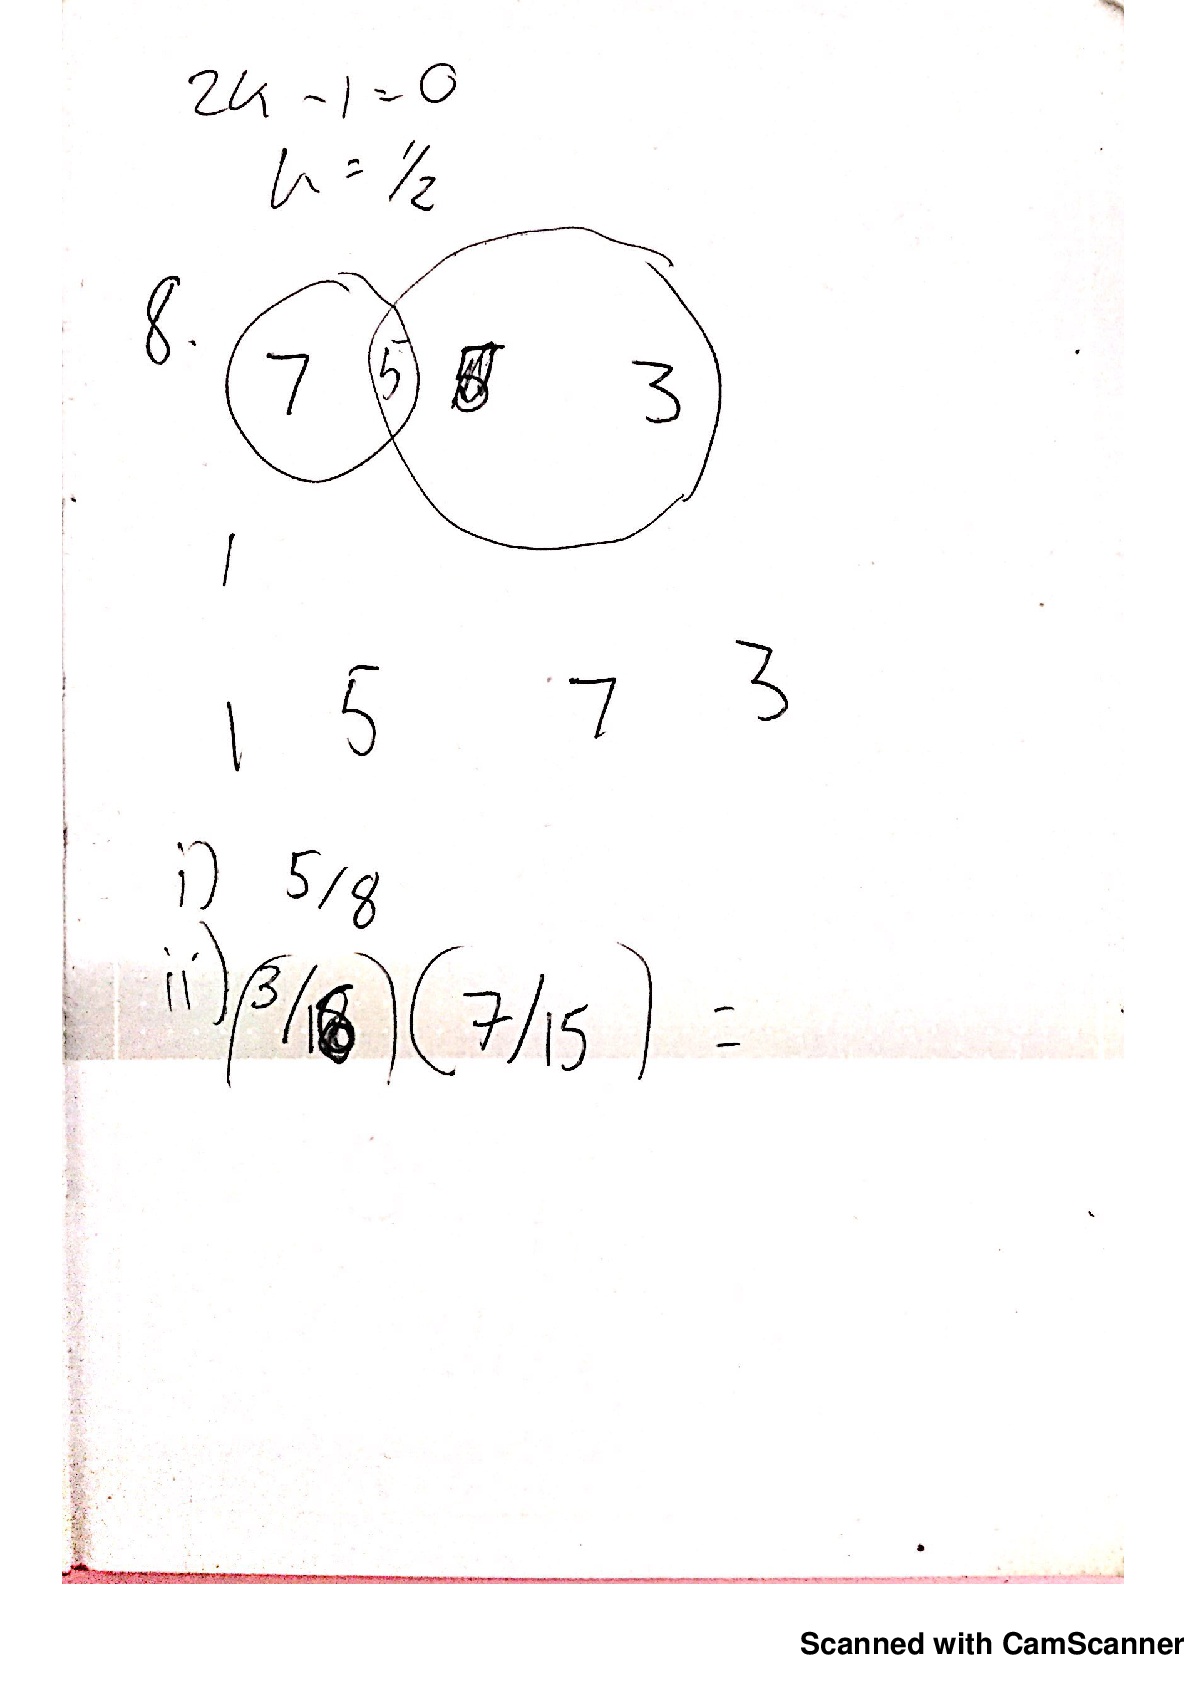 2k - 1 = 0
k = 1/2
8.
7 5 3
1
1 5 7 3
i) 5/8
ii) (3/16)(7/15) =
Scanned with CamScanner